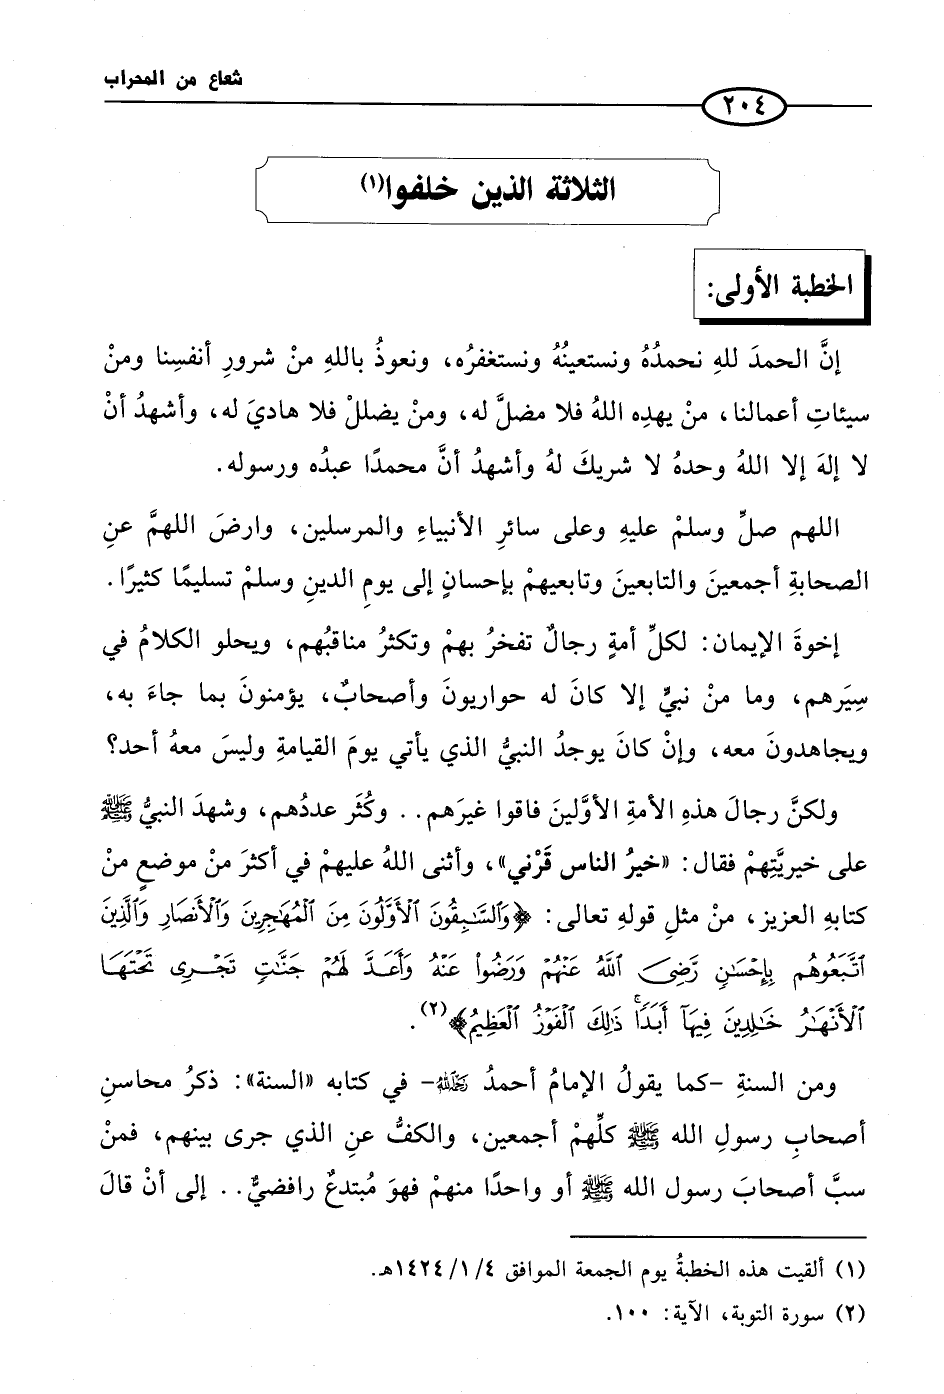 شعاع من المحراب
٢٠٤
الثلاثة الذين خلفوا(١)
الخطبة الأولى:
إنَّ الحمدَ للهِ نحمدُهُ ونستعينُهُ ونستغفرُه، ونعوذُ باللهِ منْ شرورِ أنفسِنا ومنْ
سيئاتِ أعمالنا، منْ يهدِه اللهُ فلا مضلَّ له، ومنْ يضللْ فلا هاديَ له، وأشهدُ أنْ
لا إلهَ إلا اللهُ وحدهُ لا شريكَ لهُ وأشهدُ أنَّ محمدًا عبدُه ورسوله.
اللهم صلِّ وسلمْ عليهِ وعلى سائرِ الأنبياءِ والمرسلين، وارضَ اللهمَّ عنِ
الصحابةِ أجمعينَ والتابعينَ وتابعيهمْ بإحسانٍ إلى يومِ الدينِ وسلمْ تسليمًا كثيرًا.
إخوةَ الإيمان: لكلِّ أمةٍ رجالٌ تفخرُ بهمْ وتكثرُ مناقبُهم، ويحلو الكلامُ في
سِيَرهم، وما منْ نبيٍّ إلا كانَ له حواريونَ وأصحابٌ، يؤمنونَ بما جاءَ به،
ويجاهدونَ معه، وإنْ كانَ يوجدُ النبيُّ الذي يأتي يومَ القيامةِ وليسَ معهُ أحد؟
ولكنَّ رجالَ هذهِ الأمةِ الأوَّلينَ فاقوا غيرَهم.. وكُثَر عددُهم، وشهدَ النبيُّ ﷺ
على خيريَّتِهمْ فقال: «خيرُ الناس قرْني»، وأثنى اللهُ عليهمْ في أكثرَ منْ موضعٍ منْ
كتابهِ العزيز، منْ مثلِ قولهِ تعالى: ﴿وَٱلسَّـٰبِقُونَ ٱلْأَوَّلُونَ مِنَ ٱلْمُهَـٰجِرِينَ وَٱلْأَنصَارِ وَٱلَّذِينَ
ٱتَّبَعُوهُم بِإِحْسَـٰنٍ رَّضِىَ ٱللَّهُ عَنْهُمْ وَرَضُوا۟ عَنْهُ وَأَعَدَّ لَهُمْ جَنَّـٰتٍ تَجْرِى تَحْتَهَا
ٱلْأَنْهَـٰرُ خَـٰلِدِينَ فِيهَآ أَبَدًا ۚ ذَٰلِكَ ٱلْفَوْزُ ٱلْعَظِيمُ﴾(٢).
ومن السنةِ -كما يقولُ الإمامُ أحمدُ رحمه الله- في كتابه «السنة»: ذكرُ محاسنِ
أصحابِ رسولِ الله ﷺ كلِّهمْ أجمعين، والكفُّ عنِ الذي جرى بينهم، فمنْ
سبَّ أصحابَ رسول الله ﷺ أو واحدًا منهمْ فهوَ مُبتدعٌ رافضيٌّ.. إلى أنْ قالَ
(١) ألقيت هذه الخطبةُ يوم الجمعة الموافق ١٤٢٤/١/٤هـ.
(٢) سورة التوبة، الآية: ١٠٠.